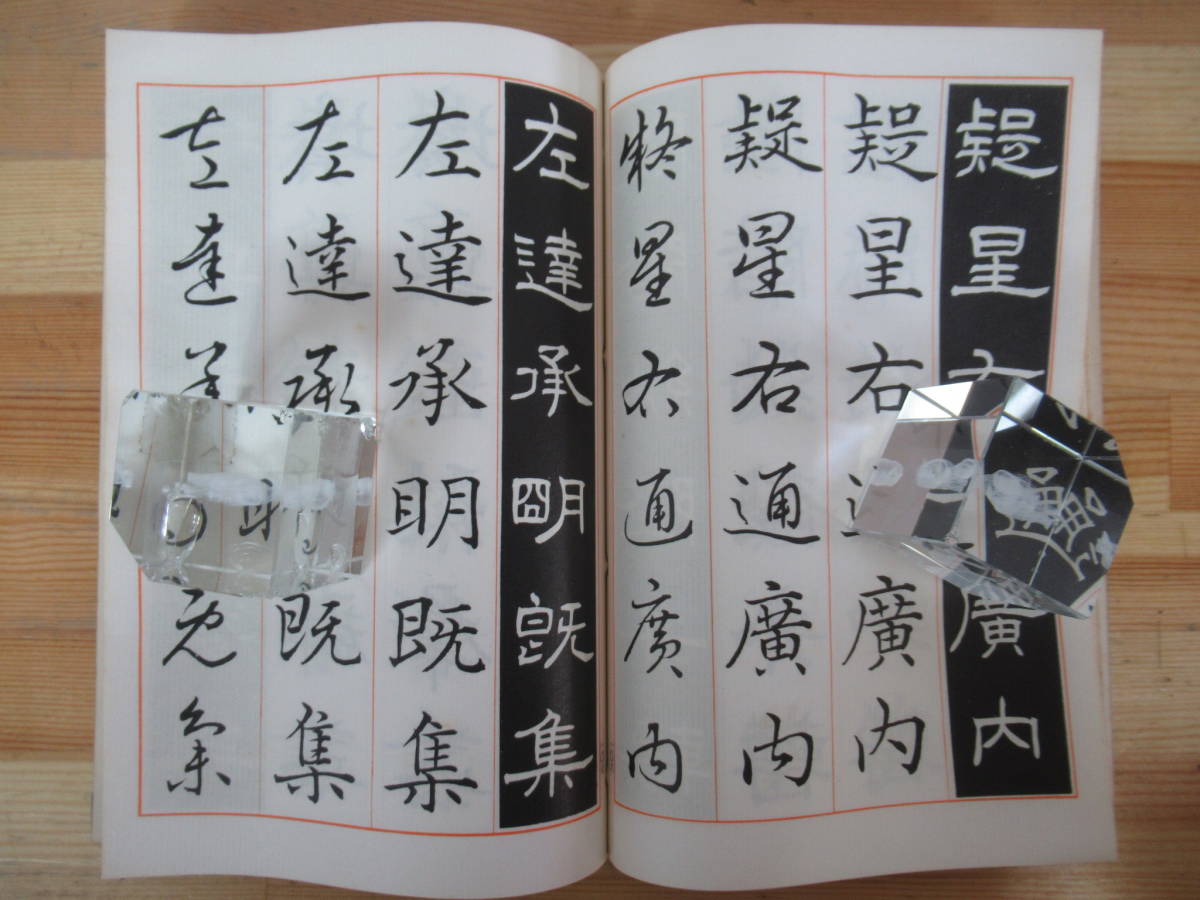 疑星右通廣内
疑星右通廣内
疑星右通廣内
疑星右通廣内
左達承明既集
左達承明既集
左達承既集
左達既集